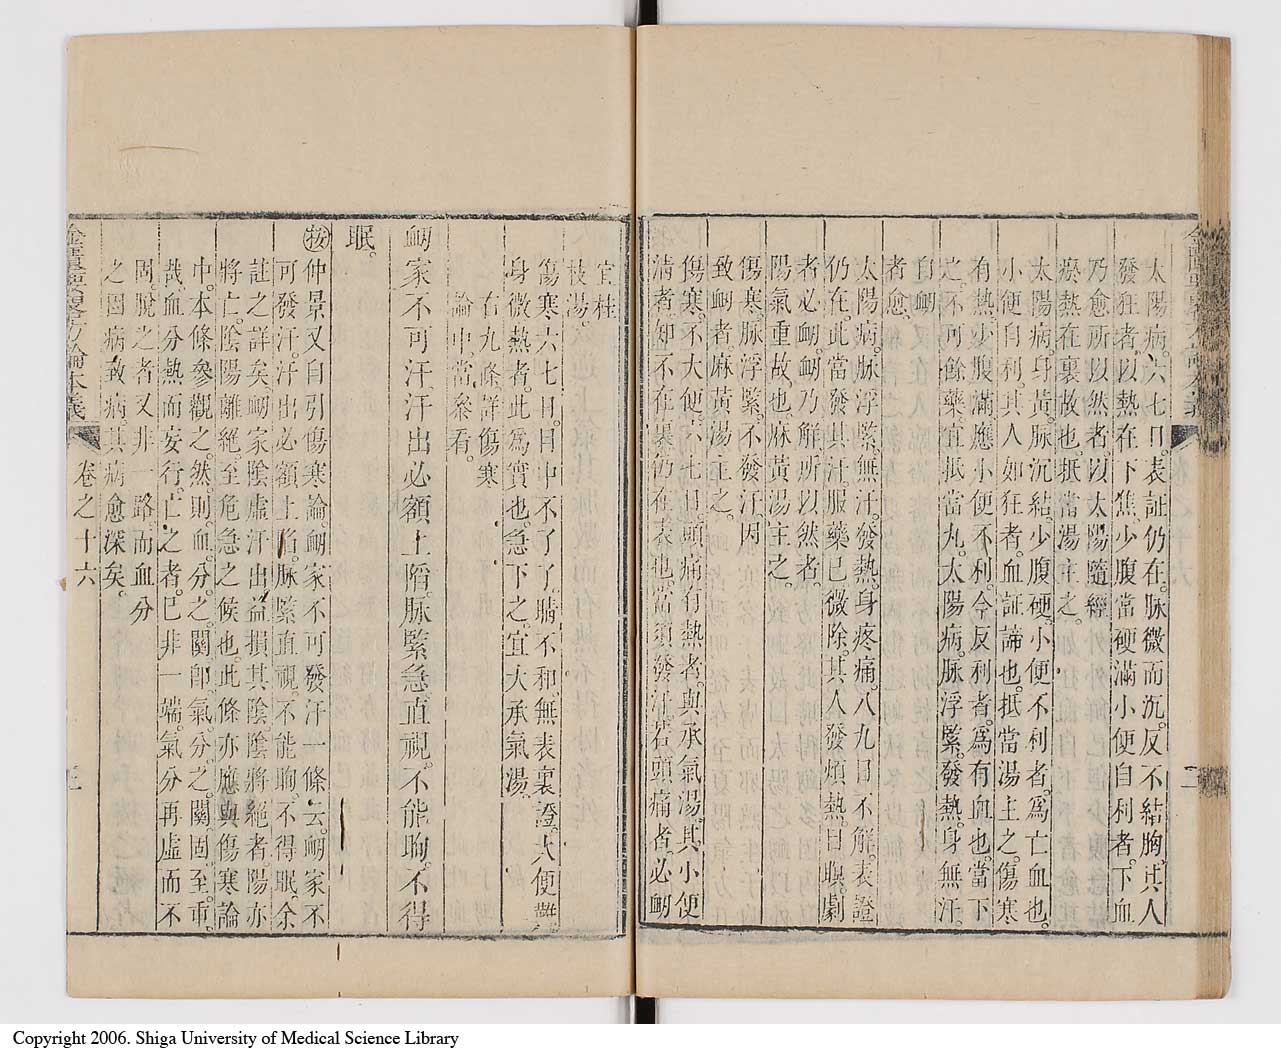 太陽病。六七日。表証仍在。脉微而沉。反不結胸。其人
發狂者。以熱在下焦。少腹當硬滿小便自利者。下血
乃愈所以然者。以太陽隨經
瘀熱在裏故也。抵當湯主之。
太陽病。身黃。脉沉結。少腹硬。小便不利者。爲亡血也。
小便自利。其人如狂者。血証諦也。抵當湯主之。傷寒
有熱少腹滿應小便不利今反利者。爲有血也。當下
之。不可餘藥宜抵當丸。太陽病。脉浮緊。發熱。身無汗。
自衂
者愈。
太陽病。脉浮緊。無汗。發熱。身疼痛。八九日。不解。表證
仍在。此當發其汗。服藥已微除。其人發煩熱。目瞑。劇
者必衂。衂乃解所以然者。
陽氣重故也。麻黃湯主之。
傷寒。脉浮緊。不發汗。因
致衂者麻黃湯主之。
傷寒。不大便。六七日。頭痛有熱者。與承氣湯。其小便
清者。知不在裏。仍在表也。當須發汗。若頭痛者必衂
二
宜桂
枝湯。
傷寒六七日。目中不了了。睛不和。無表裏證。大便難
身微熱者。此爲實也。急下之。宜大承氣湯。
右九條詳傷寒
論中。當叅看。
衂家不可汗汗出必額上陷。脉緊急。直視。不能眴。不得
眠。
按仲景又自引傷寒論。衂家不可發汗一條云。衂家不
可發汗。汗出必額上陷。脉緊直視。不能眴。不得眠。余
註之詳矣衂家陰虛汗出益損其陰。陰將絕者陽亦
將亡。陰陽離絕至危急之候也。此條亦應與傷寒論
中。本條參觀之。然則。血。分。之。關。卽。氣。分。之。關。固至。重。
哉。血分熱而妄行。亡之者。已非一端。氣分再虛而不
固。脫之者又非一路。而血分
之因病致病。其病愈深矣。
金匱要畧方論本義
卷之十六
三
Copyright 2006. Shiga University of Medical Science Library